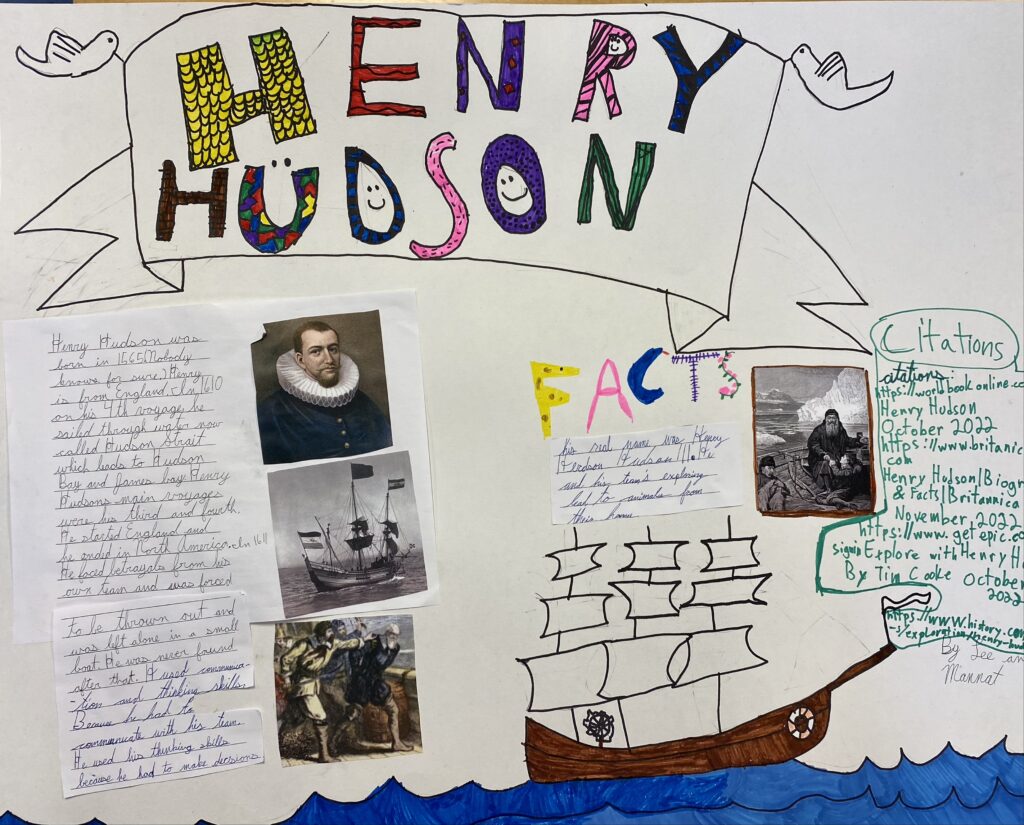 HENRY
HÜDSON
Henry Hudson was
born in 1565(Nobody
knows for sure.) Henry
is from England. In 1610
on his 4th voyage he
sailed through water now
called Hudson Strait
which leads to Hudson
Bay and James bay. Henry
Hudsons main voyages
were his third and fourth.
He started England and
he ended in North America. In 1611
He faced betrayals from his
own team and was forced
to be thrown out and
was left alone in a small
boat. He was never found
after that. It used communica-
-tion and thinking skills.
Because he had to
communicate with his team.
He used his thinking skills
because he had to make decisions.
FACTS
his real name was Henry
Hudson III. He
and his team's exploring
led to animals from
their home
Citations
citations:
https://worldbookonline.co
Henry Hudson
October 2022
https://www.britanic
com
Henry Hudson|Biogr
& Facts|Britannica
November, 2022
https://www.getepic.co
signin Explore with Henry H
By Tim Cooke October
2022
https://www.history.com
-/exploration/henry-hud
By Lee an
Mannat